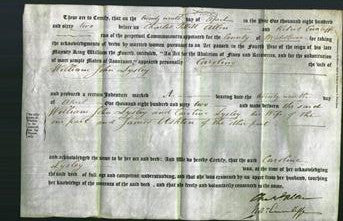 These are to Certify, that on the twenty ninth day of April in the Year One thousand eight hundred
and sixty two before us Charles and Robert
two of the perpetual Commissioners appointed for the County of Middlesex for taking
the acknowledgments of deeds by married women pursuant to an Act passed in the Fourth Year of the reign of his late
Majesty King William the Fourth, intituled, "An Act for the Abolition of Fines and Recoveries, and for the substitution
of more simple Modes of Assurance," appeared personally Caroline
the wife of
William John Lysley
and produced a certain Indenture marked A bearing date the twenty ninth
day of April One thousand eight hundred and sixty two and made between the said
William John Lysley and Caroline Lysley his Wife of the
one part and James Ashton of the other part
and acknowledged the same to be her act and deed. And We do hereby Certify, that the said Caroline
Lysley was, at the time of her acknowledging
the said deed, of full age and competent understanding, and that she was examined by us apart from her husband, touching
her knowledge of the contents of the said deed, and that she freely and voluntarily consented to the same.